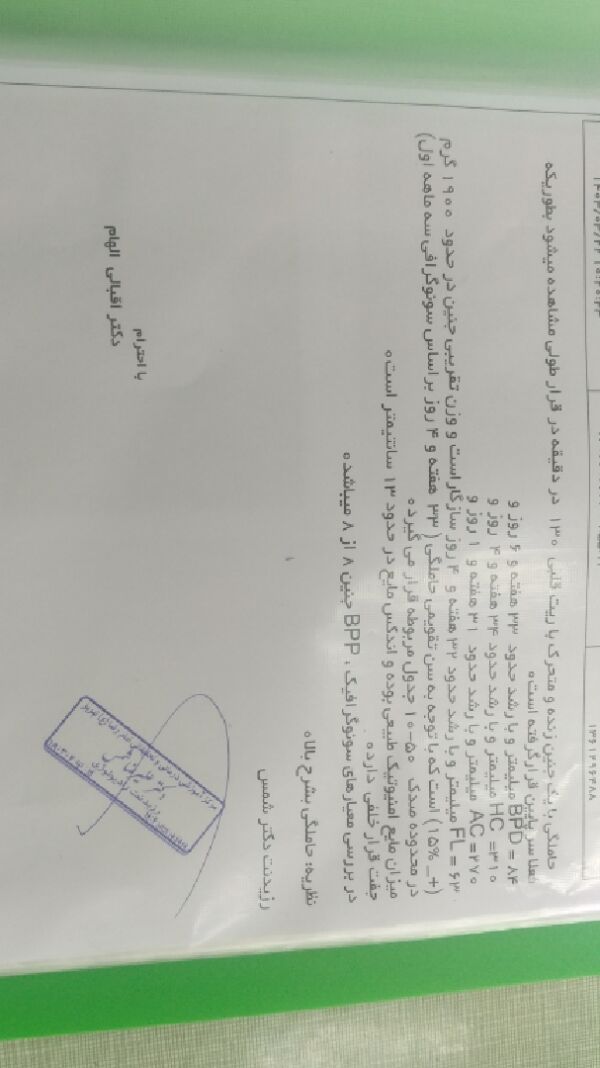 ۱۳۶۱۲۹۶۳۸۸
حاملگی با یک جنین زنده و متحرک با ریت قلبی ۱۳۰ در دقیقه در قرار طولی مشاهده میشود بطوریکه
فعلا سر پایین قرار گرفته است.
BPD = ۸۴ میلیمتر و با رشد حدود ۳۳ هفته و ۶ روز و
HC = ۳۱۰ میلیمتر و با رشد حدود ۳۴ هفته و ۴ روز و
AC = ۲۷۰ میلیمتر و با رشد حدود ۳۱ هفته و ۱ روز و
FL = ۶۳ میلیمتر و با رشد حدود ۳۲ هفته و ۴ روز سازگار است و وزن تقریبی جنین در حدود ۱۹۰۰ گرم
(+_ 15%) است که با توجه به سن تقویمی حاملگی ( ۳۳ هفته و ۴ روز بر اساس سونوگرافی سه ماهه اول)
در محدوده صدک ۵۰-۱۰ جدول مربوطه قرار می گیرد.
میزان مایع امنیوتیک طبیعی بوده و اندکس مایع در حدود ۱۳ سانتیمتر است.
جفت قرار خلفی دارد.
در بررسی معیارهای سونوگرافیک ، BPP جنین ۸ از ۸ میباشد.
نظریه: حاملگی بشرح بالا.
رزیدنت دکتر شمس
با احترام
دکتر اقبالی الهام